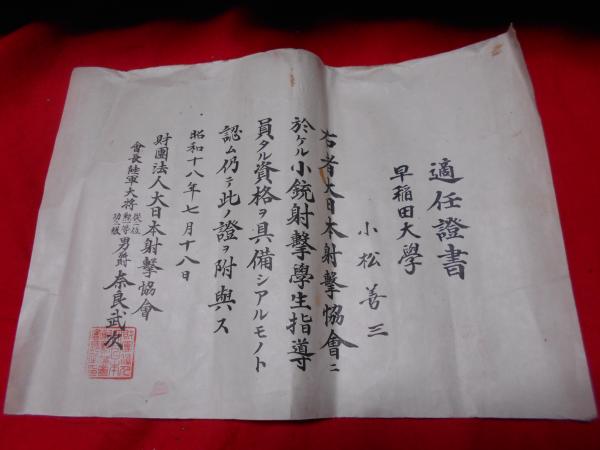 適任證書
早稲田大學
小松善三
右者大日本射擊協會ニ
於ケル小銃射擊學生指導
員タル資格ヲ具備シアルモノト
認ム仍テ此ノ證ヲ附與ス
昭和十八年七月十八日
財團法人大日本射擊協會
會長陸軍大将
男爵奈良武次